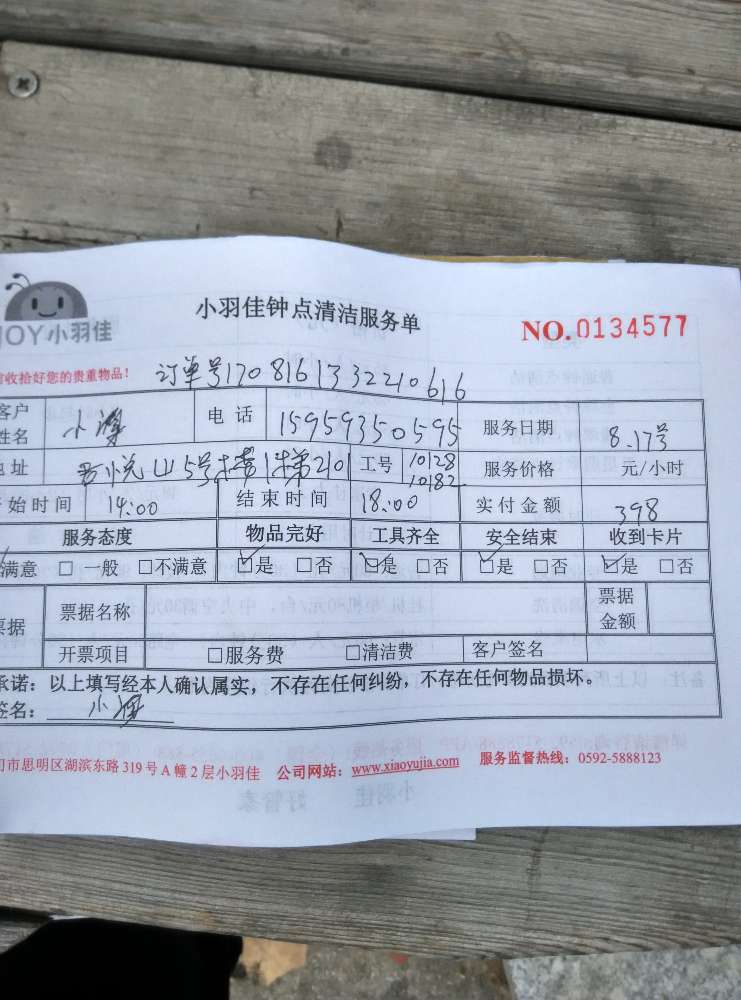 JOY小羽佳
小羽佳钟点清洁服务单
NO.0134577
收拾好您的贵重物品!
订单号1708161332210616
客户姓名 小 电话 15959350595 服务日期 8.17号
地址 悦山5号楼1梯210 工号 10128 10182 服务价格 元/小时
始时间 14:00 结束时间 18:00 实付金额 398
服务态度 物品完好 工具齐全 安全结束 收到卡片
满意 □一般 □不满意 ☑是 □否 ☑是 □否 ☑是 □否 ☑是 □否
票据 票据名称 票据金额
开票项目 □服务费 □清洁费 客户签名
承诺：以上填写经本人确认属实，不存在任何纠纷，不存在任何物品损坏。
签名： 小
门市思明区湖滨东路319号A幢2层小羽佳 公司网站：www.xiaoyujia.com 服务监督热线：0592-5888123